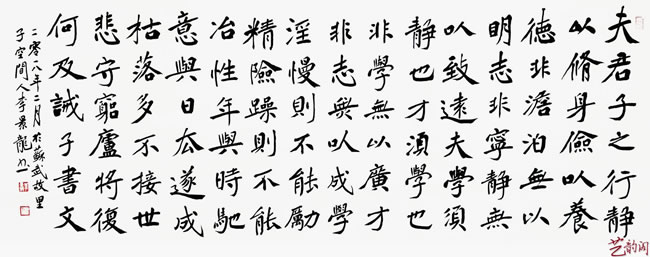 夫君子之行靜
以脩身儉以養
德非澹泊無以
明志非寧靜無
以致遠夫學須
靜也才須學也
非學無以廣才
非志無以成學
淫慢則不能勵
精險躁則不能
冶性年與時馳
意與日去遂成
枯落多不接世
悲守窮廬將復
何及誡子書文
二零一八年二月於蘇武故里
子空間人李景龍
艺韵阁